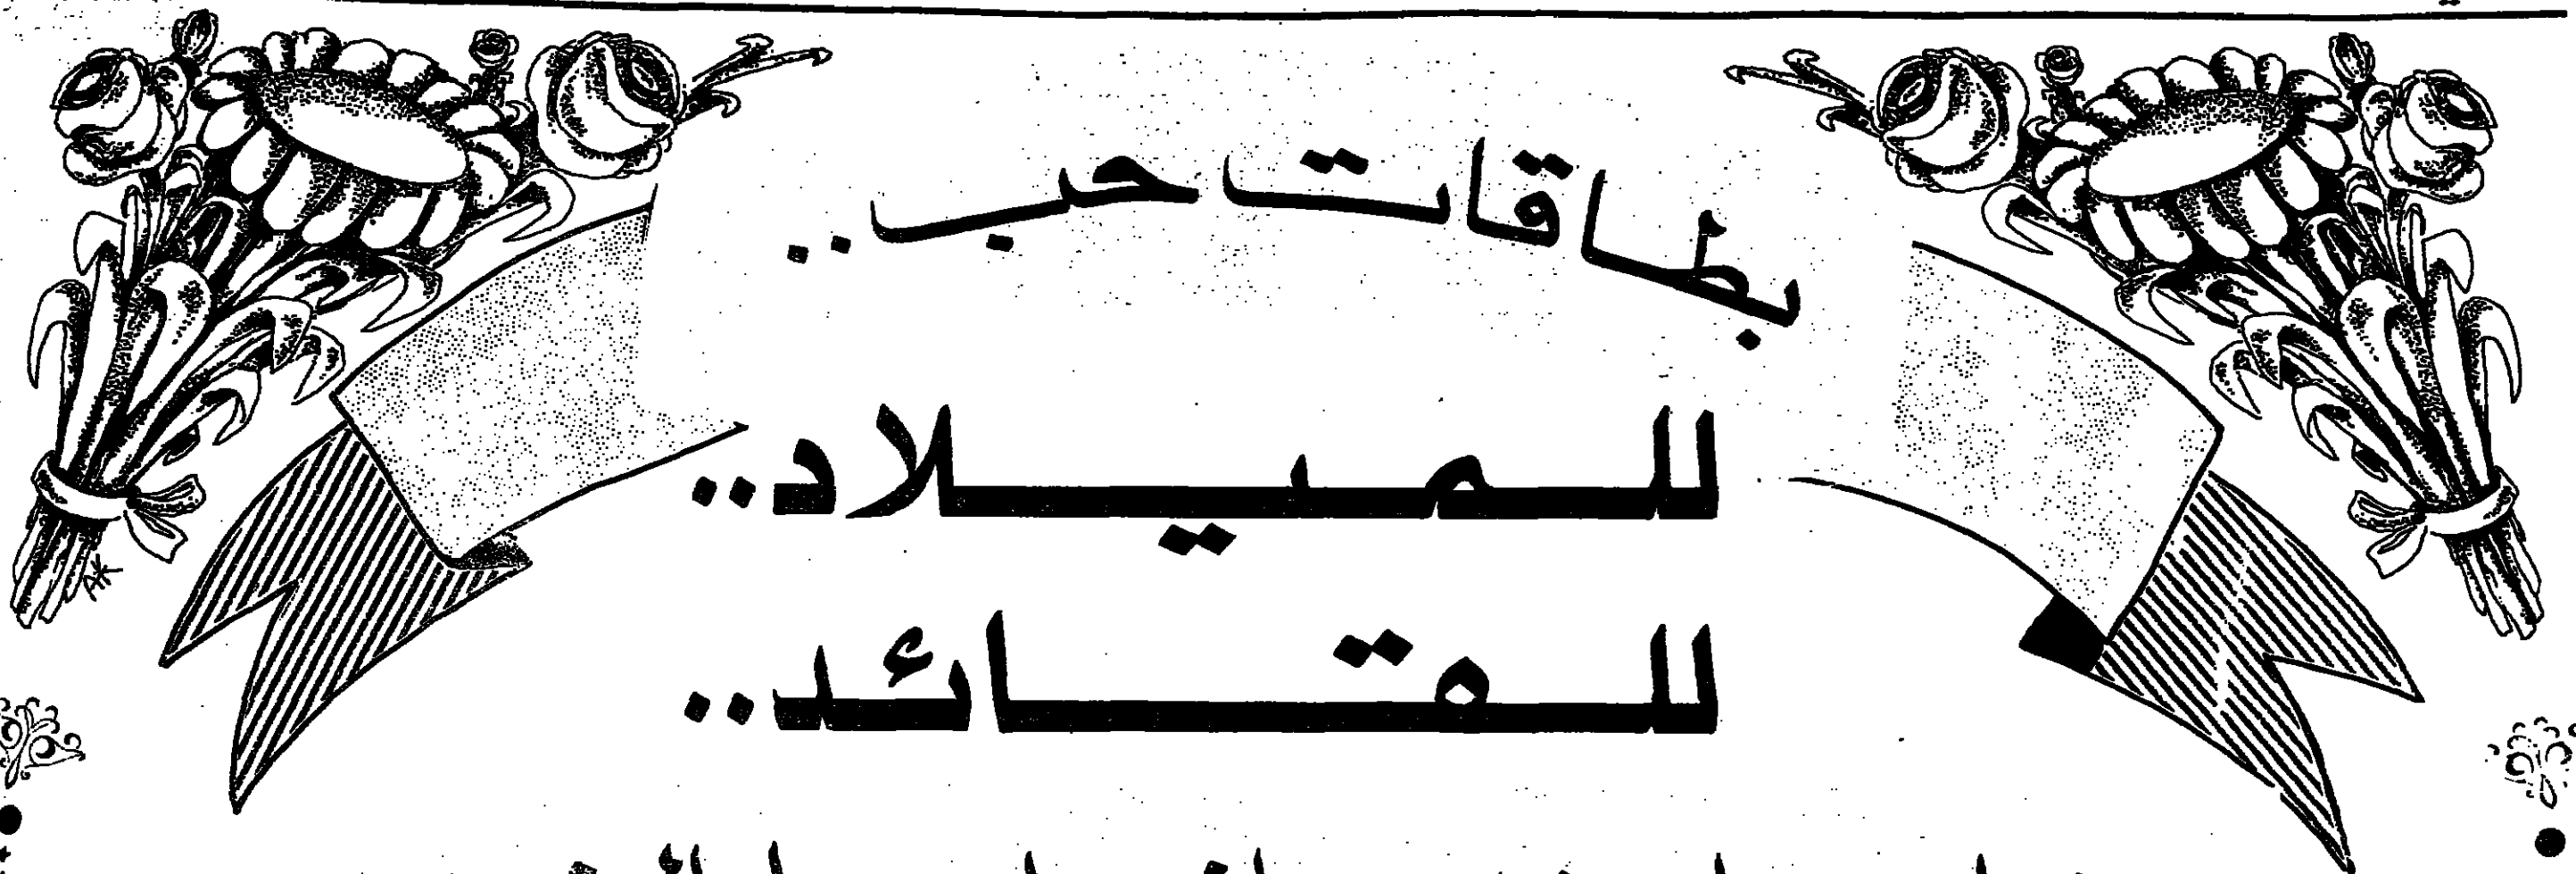 بطاقات حب..
للميلاد..
للقائد..